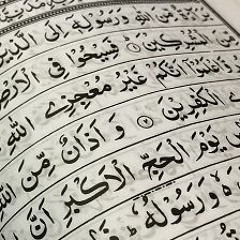 مِّنَ اللهِ وَرَسُولِهٖٓ اِلَى الَّذِيْنَ
الْمُشْرِكِيْنَ ۝١ فَسِيْحُوْا فِي الْاَرْضِ
اَنَّكُمْ غَيْرُ مُعْجِزِي اللهِ
الْكٰفِرِيْنَ ۝٢ وَاَذَانٌ مِّنَ اللهِ
يَوْمَ الْحَجِّ الْاَكْبَرِ اَنَّ
وَرَسُوْلُهٗ